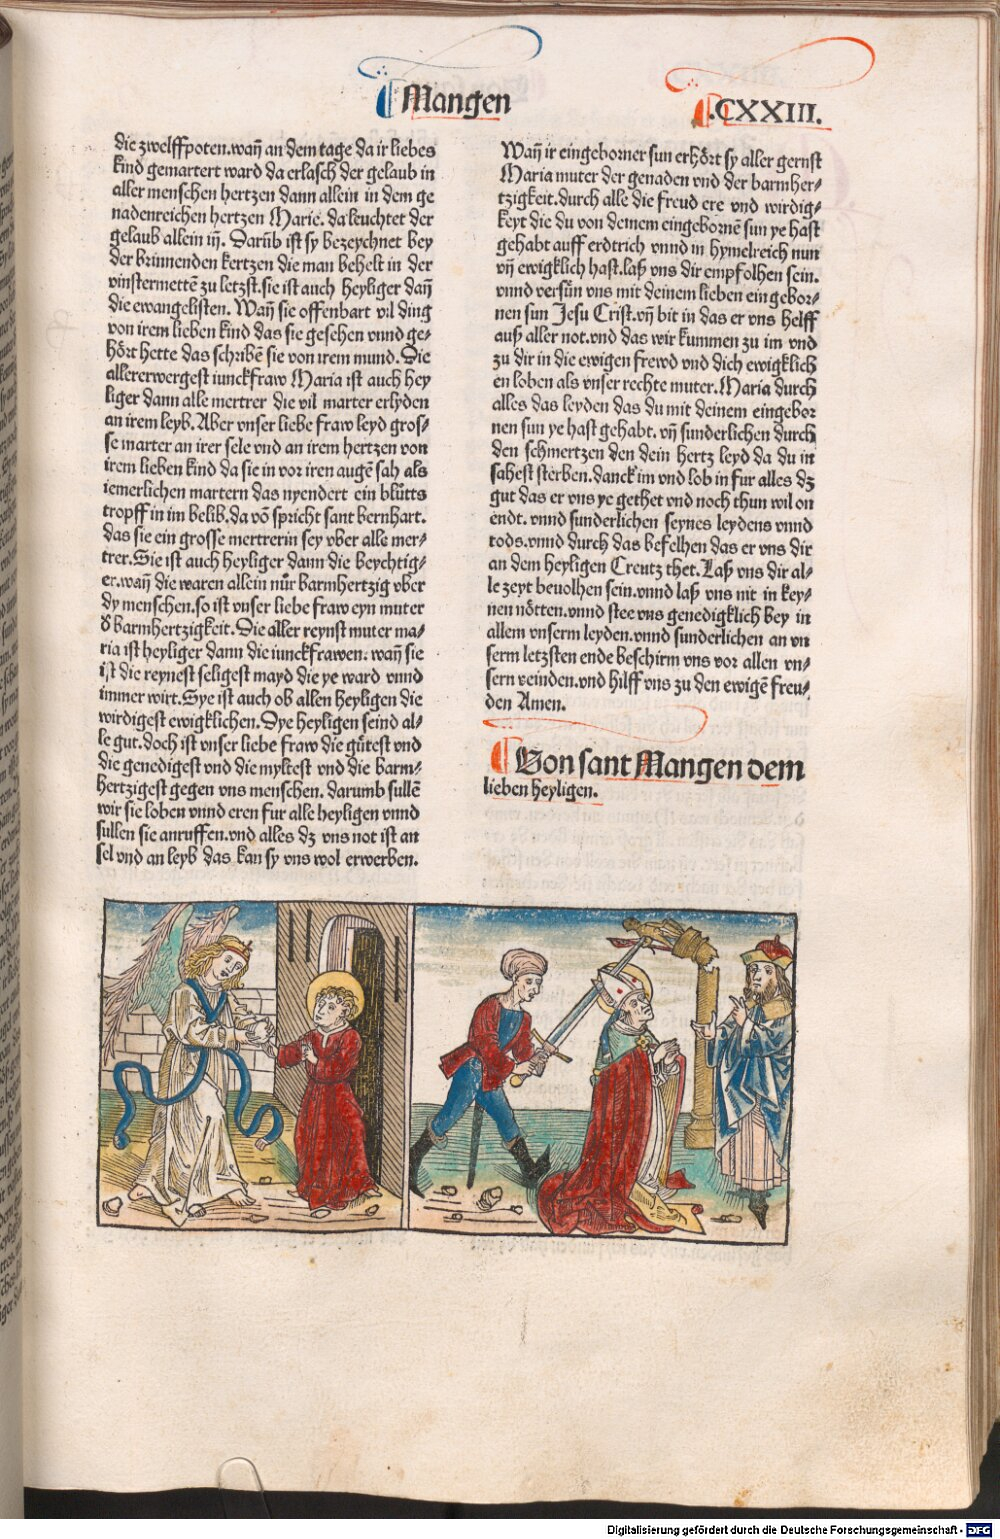 Mangen
.CXXIII.
die zwelffpoten.wañ an dem tage da ir liebes
kind gemartert ward da erlasch der gelaub in
aller menschen hertzen dann allein in dem ge
nadenreichen hertzen Marie. da leuchtet der
gelaub allein iñ. Darũb ist sy bezeychnet bey
der brinnenden kertzen die man behelt in der
vinstermettẽ zu letzst.sie ist auch heyliger dañ
die ewangelisten. Wañ sie offenbart vil ding
von irem lieben kind das sie gesehen vnnd ge⸗
hört hette das schribẽ sie von irem mund. Die
allererwergest iunckfraw Maria ist auch hey
liger dann alle mertrer die vil marter erlyden
an irem leyb. Aber vnser liebe fraw leyd gros⸗
se marter an irer sele vnd an irem hertzen von
irem lieben kind da sie in vor iren augẽ sah als
iemerlichen martern das nyendert ein blůtts
tropff in im belib.da võ spricht sant bernhart.
das sie ein grosse mertrerin sey vber alle mer⸗
trer. Sie ist auch heyliger dann die beychtig⸗
er.wañ die waren allein nůr barmhertzig vber
dy menschen.so ist vnser liebe fraw eyn muter
ð barmhertzigkeit. Die aller reynst muter ma⸗
ria ist heyliger dann die iunckfrawen. wañ sie
ist die reynest seligest mayd die ye ward vnnd
immer wirt. Sye ist auch ob allen heyligen die
wirdigest ewigklichen. Dye heyligen seind al⸗
le gut.doch ist vnser liebe fraw die gůtest vnd
die genedigest vnd die myltest vnd die barm⸗
hertzigest gegen vns menschen. darumb sullẽ
wir sie loben vnnd eren fur alle heyligen vnnd
sullen sie anruffen.vnd alles dz vns not ist an
sel vnd an leyb das kan sy vns wol erwerben.
Wañ ir eingeborner sun erhört sy aller gernst
Maria muter der genaden vnd der barmher⸗
tzigkeit.durch alle die freud ere vnd wirdig⸗
keyt die du von deinem eingebornẽ sun ye hast
gehabt auff erdtrich vnnd in hymelreich nun
vñ ewigklich hast.laß vns dir empfolhen sein.
vnnd versün vns mit deinem lieben eingebor⸗
nen sun Jesu Crist.vñ bit in das er vns helff
auß aller not.vnd das wir kummen zu im vnd
zu dir in die ewigen frewd vnd dich ewigklich
en loben als vnser rechte muter. Maria durch
alles das leyden das du mit deinem eingebor
nen sun ye hast gehabt. vñ sunderlichen durch
den schmertzen den dein hertz leyd da du in
sahest sterben.danck im vnd lob in fur alles dz
gut das er vns ye gethet vnd noch thun wil on
endt. vnnd sunderlichen seynes leydens vnnd
tods.vnnd durch das befelhen das er vns dir
an dem heyligen Creutz thet. Laß vns dir al⸗
le zeyt beuolhen sein.vnnd laß vns nit in key⸗
nen nötten.vnnd stee vns genedigklich bey in
allem vnserm leyden.vnnd sunderlichen an vn
serm letzsten ende beschirm vns vor allen vn⸗
sern veinden.vnd hilff vns zu den ewigẽ freu⸗
den Amen.
Von sant Mangen dem
lieben heyligen.
Digitalisierung gefördert durch die Deutsche Forschungsgemeinschaft - DFG